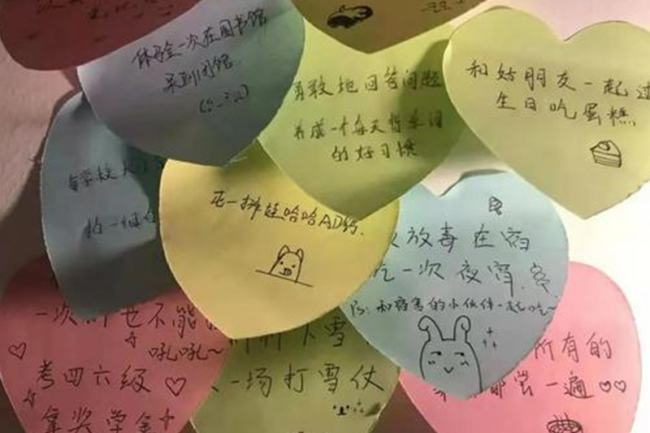 体验一次在图书馆
呆到闭馆
勇敢地回答问题
养成一个每天背单词
的好习惯
和好朋友一起过
生日吃蛋糕
每学校
拍一
屯一排娃哈哈AD钙
放毒在宿
吃一次夜宵
Ps: 和宿舍的小伙伴一起吃~
一次 也不能
吼吼~
考四六级
拿奖学金
下雪
一场打雪仗
所有的
都尝一遍